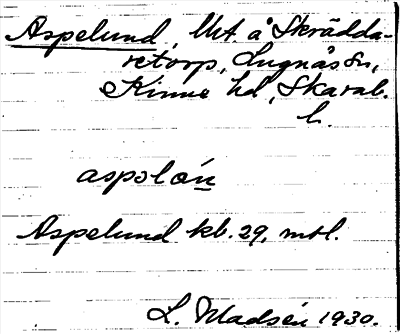 Aspelund, lht å Skrädda-
retorp, Lugnås sn,
Kinne hd, Skarab.
l.
aspəlœ́n
Aspelund kb. 29, mtl.
L. Madsén 1930.